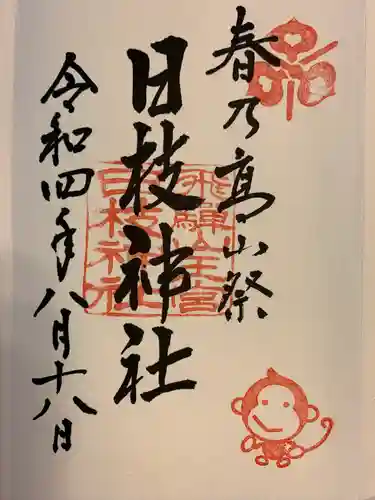 春乃高山祭
日枝神社
令和四年八月十八日
飛騨山王宮
日枝神社